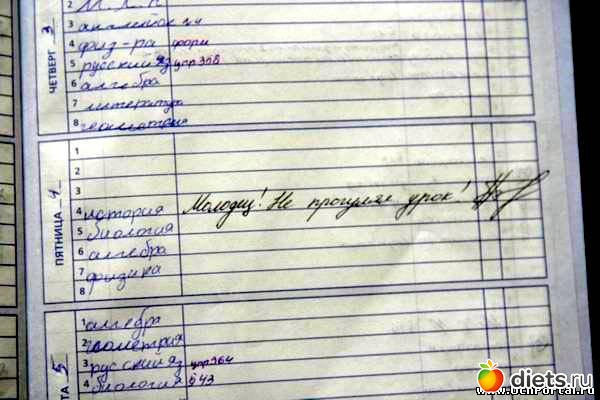 ЧЕТВЕРГ 3
2 М.Х.К
3 английск
4 физ-ра форм
5 русский яз упр 356
6 алгебра
7 литература
8 геометрия
ПЯТНИЦА 4
1
2
3
4 история Молодец! Не прогулял урок!
5 биология
6 алгебра
7 физика
8
ТА 5
1 алгебра
2 геометрия
3 русский яз упр 364
4 биология § 43
diets.ru
www.uchPortal.ru